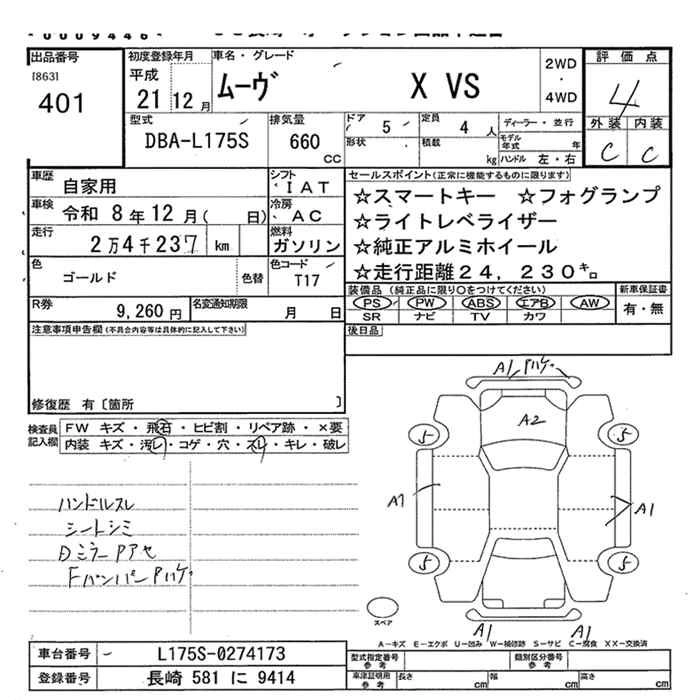 出品番号
[863]
401
初度登録年月
平成
21 12 月
車名・グレード
ムーヴ X VS
2WD
・
4WD
評価点
4
外装 内装
C C
型式
DBA-L175S
排気量
660
CC
ドア
5
形状
定員
4 人
積載
kg
ディーラー・並行
モデル
年式 年
ハンドル 左・右
車歴
自家用
シフト
IAT
車検
令和 8年12月( 日)
冷房
AC
走行
2万4千237 km
燃料
ガソリン
色
ゴールド
色替
色コード
T17
セールスポイント(正常に機能するものに限ります)
☆スマートキー ☆フォグランプ
☆ライトレベライザー
☆純正アルミホイール
☆走行距離24,230㌔
R券
9,260 円
名変通知期限
月 日
装備品(純正品に限り○をつけてください)
PS PW ABS エアB AW
SR ナビ TV カワ
新車保証書
有・無
後日品
注意事項申告欄(不具合内容等は具体的に記入して下さい)
修復歴 有〔箇所 〕
検査員
記入欄
FW キズ・飛石・ヒビ割・リペア跡・×要
内装 キズ・汚レ・コゲ・穴・スレ・キレ・破レ
ハンドルスレ
シートシミ
DミラーPアセ
FバンパーPハゲ
A1 Pハゲ
A2
5
5
A1
A1
5
5
スペア
A1
A1
A-キズ E-エクボ U-凹み W-補修跡 S-サビ C-腐食 XX-交換済
車台番号
L175S-0274173
登録番号
長崎 581 に 9414
型式指定番号
参考
類別区分番号
参考
車庫証明用
参考
長さ cm
幅 cm
高さ cm